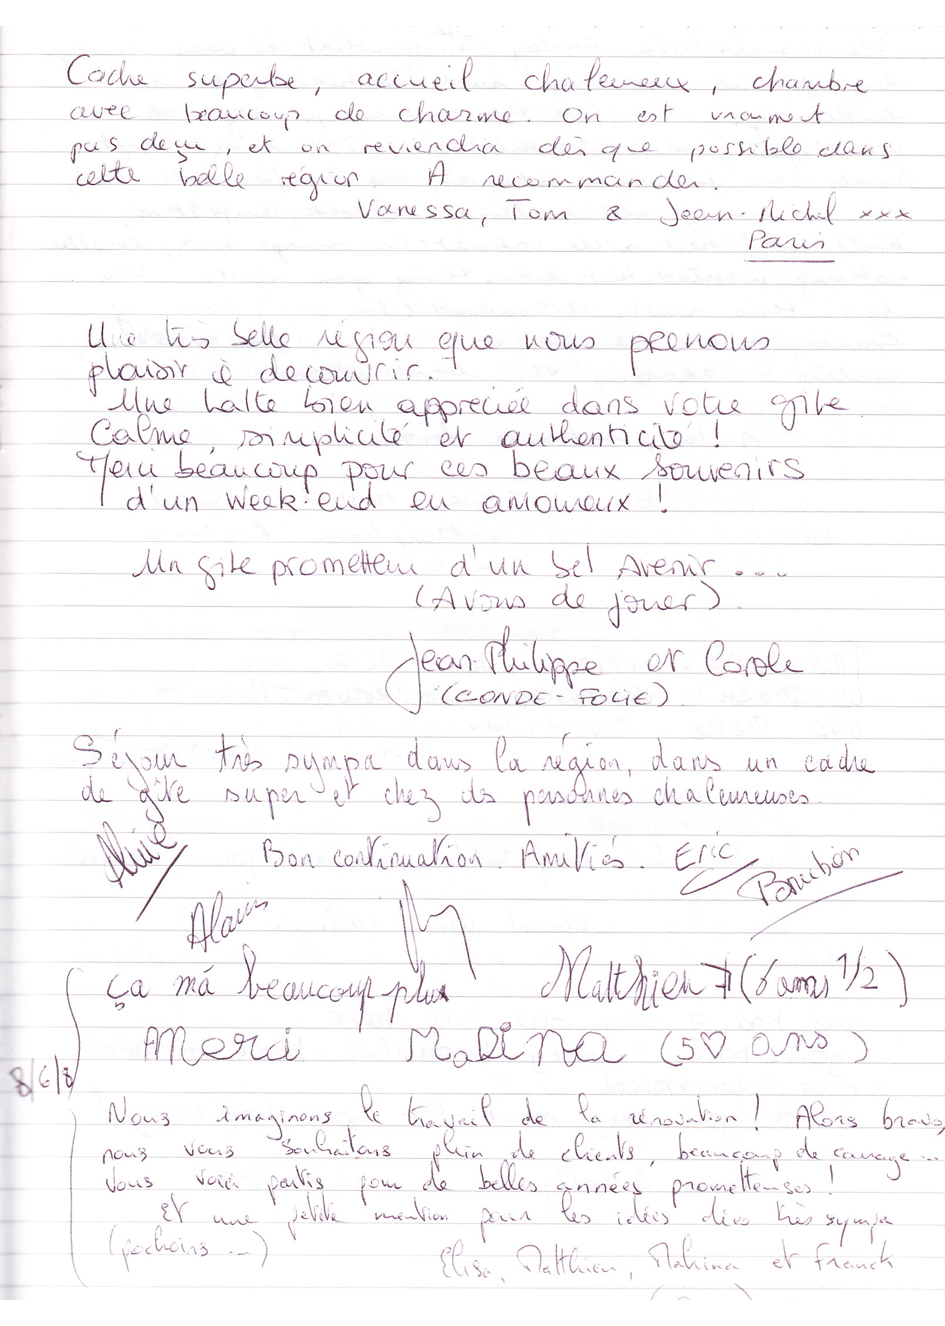 Cadre superbe, accueil chaleureux, chambre
avec beaucoup de charme. On est vraiment
pas déçu, et on reviendra dès que possible dans
cette belle région. A recommander.
Vanessa, Tom & Jean-Michel xxx
Paris
Une très belle région que nous prenons
plaisir à decouvrir.
Une halte bien appréciée dans votre gite
Calme, simplicité et authenticité !
Merci beaucoup pour ces beaux souvenirs
d'un week-end en amoureux !
Un gite prometteur d'un bel Avenir ...
(Avons de jouer)
Jean-Philippe et Carole
(CONDE-FOLIE)
Séjour très sympa dans la région, dans un cadre
de gîte super et chez des personnes chaleureuses.
Bon continuation. Amitiés. Eric
Alain
ça ma beaucoup plus Matthieu (6 ans 1/2)
Merci (5 ans)
8/6/8
Nous imaginons le travail de la rénovation ! Alors bravo,
nous vous souhaitons plein de clients, beaucoup de courage ...
Vous voici partis pour de belles années prometteuses !
Et une petite mention pour les idées déco très sympa
(pochoirs ...)
Elisa, Matthieu, Mahina et Franck